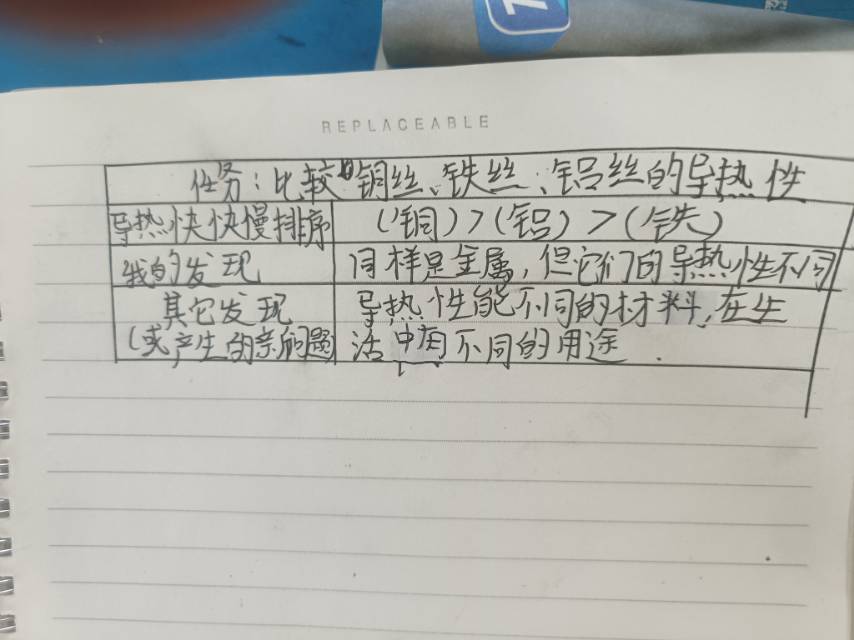 REPLACEABLE
任务：比较铜丝、铁丝、铝丝的导热性
导热快快慢排序 （铜）>（铝）>（铁）
我的发现 同样是金属，但它们的导热性不同
其它发现 导热性能不同的材料，在生
（或产生的亲问题 活中有不同的用途．